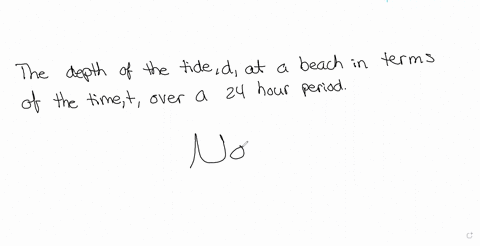 The depth of the tide, d, at a beach in terms
of the time, t, over a 24 hour period.
No